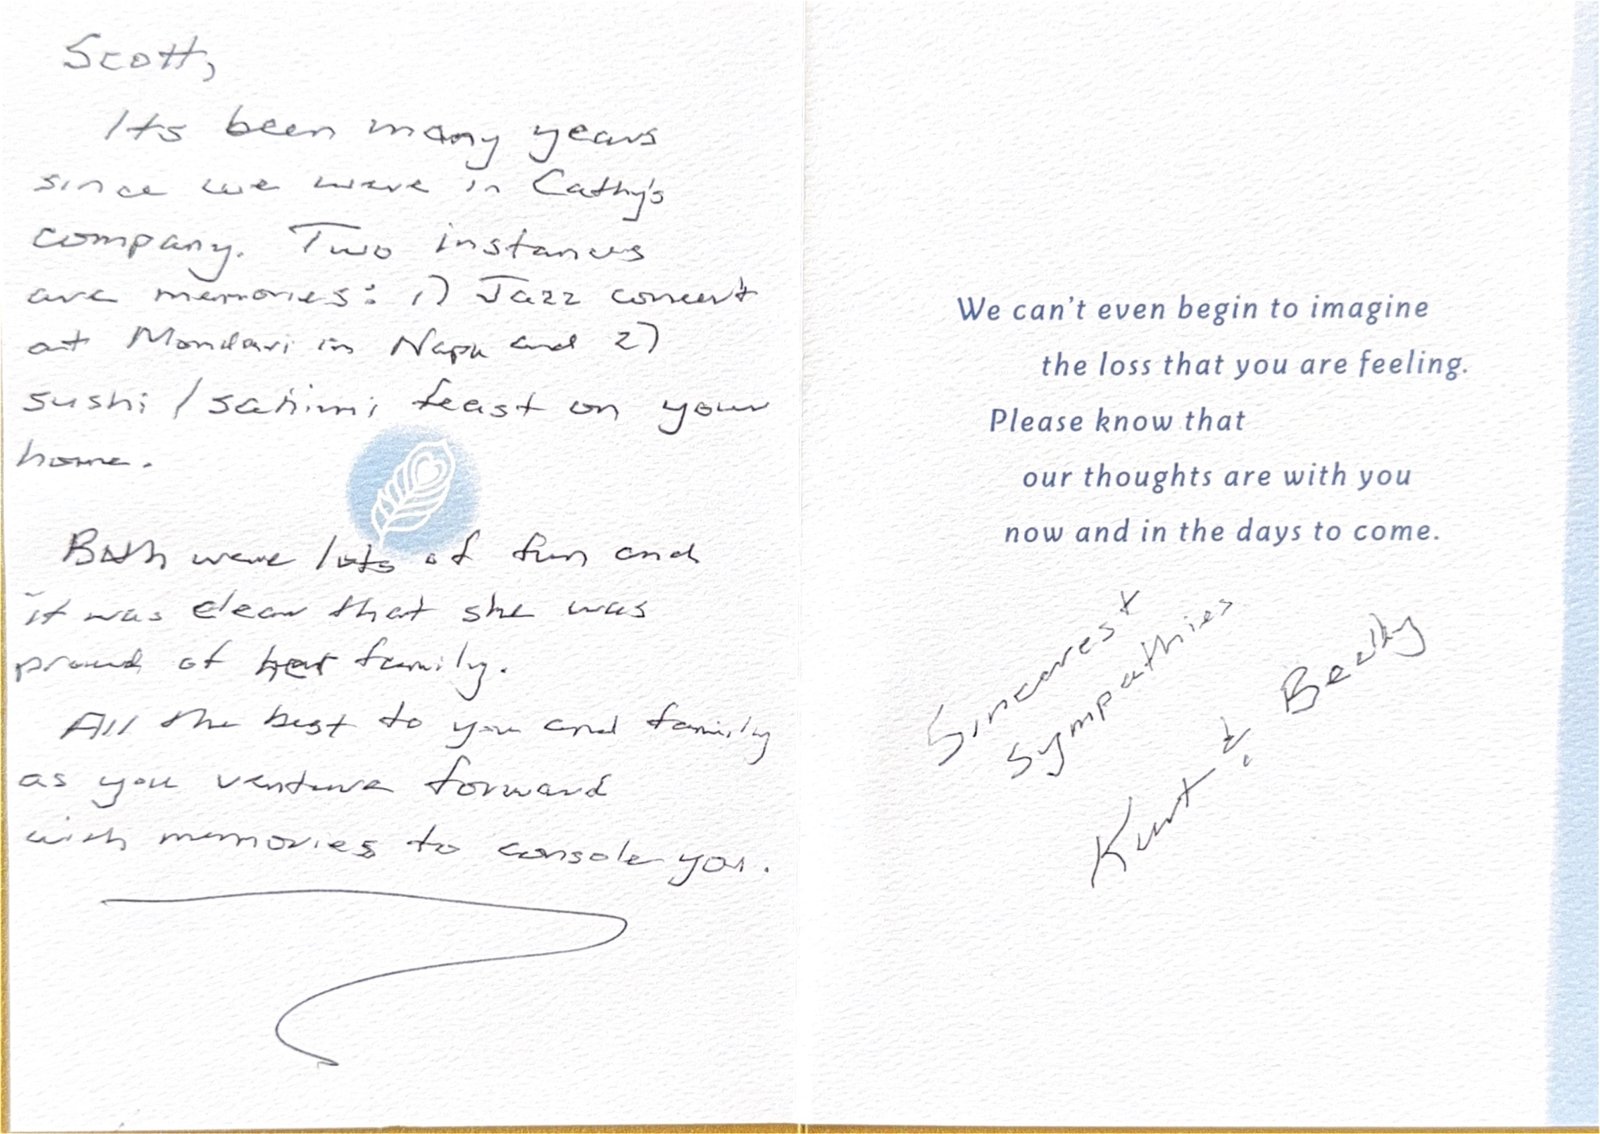 Scott,
Its been many years
since we were in Cathy's
company. Two instances
are memories: 1) Jazz concert
at Mondavi in Napa and 2)
sushi/sahimi feast on your
home.
Both were lots of fun and
it was clear that she was
proud of her family.
All the best to you and family
as you venture forward
with memories to console you.
We can't even begin to imagine
the loss that you are feeling.
Please know that
our thoughts are with you
now and in the days to come.
Sincerest
Sympathies
Kurt & Becky